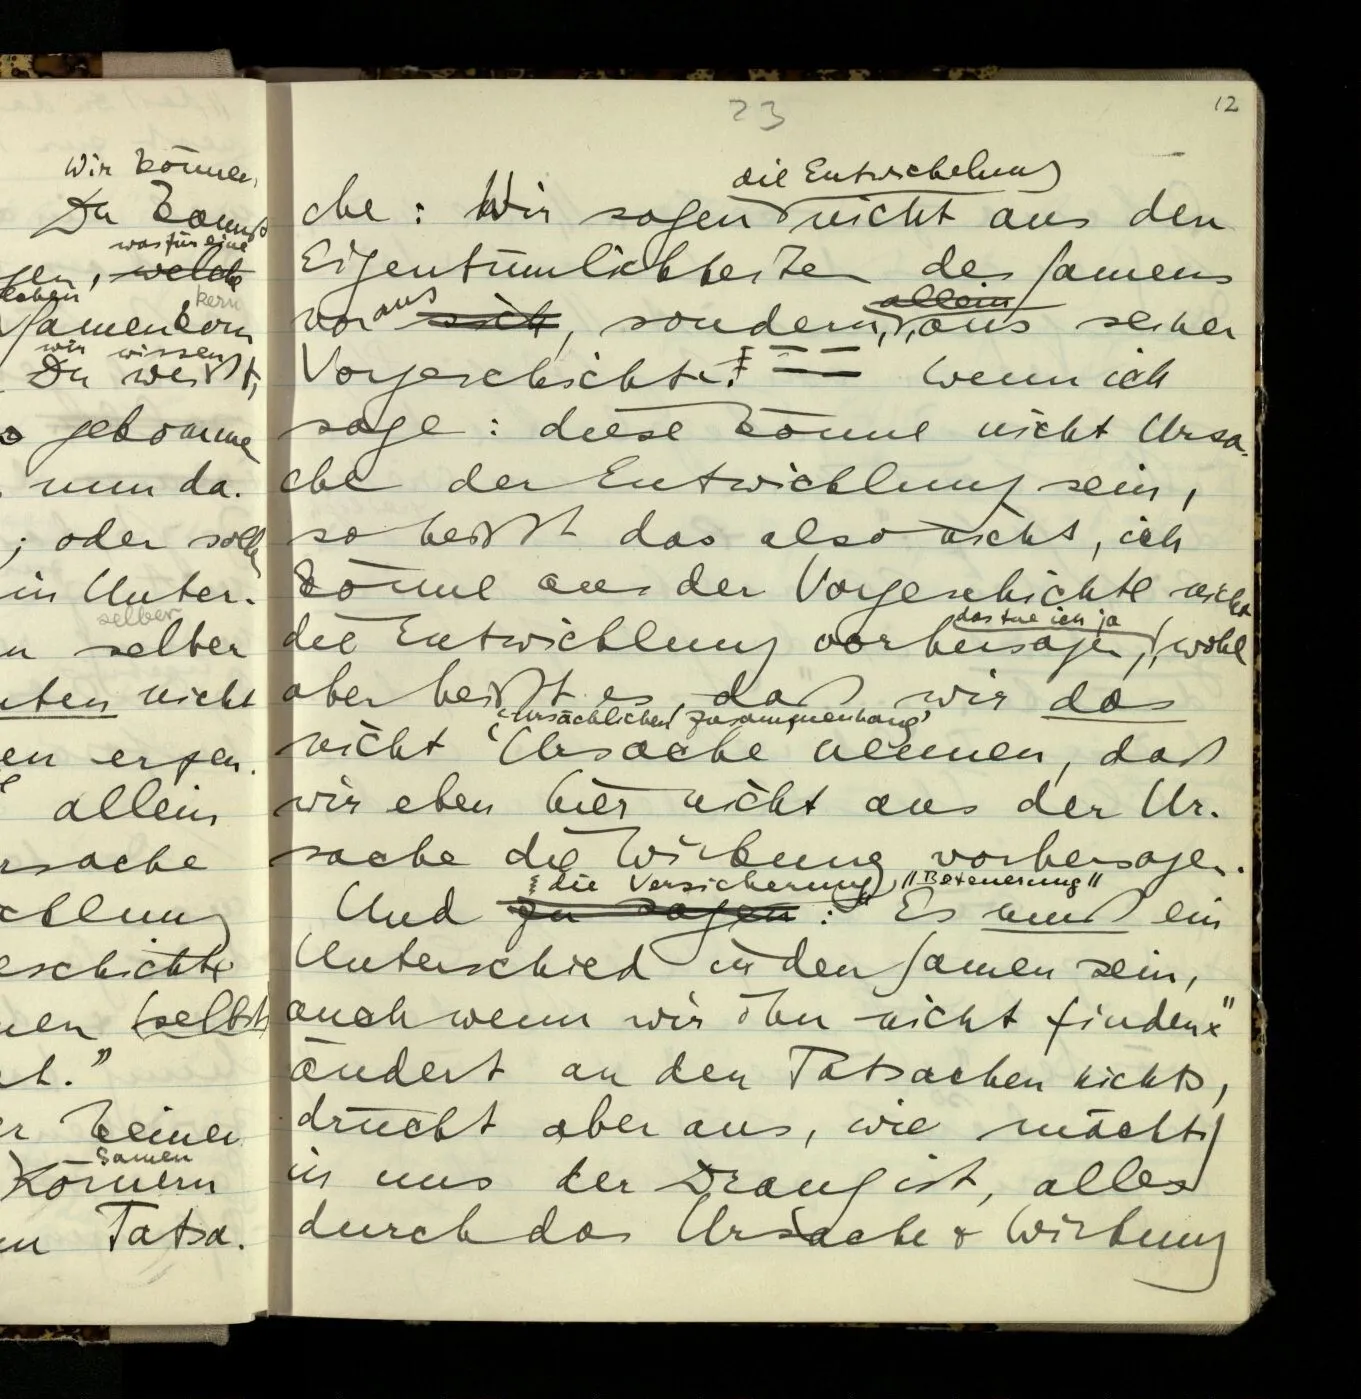 Wir können
Du kannst
was für eine
gen, welche
kern
Samenkorn
wir wissen
Du weißt,
gekomme
nun da.
; oder soll
in Unter-
selber
n selber
nicht
en erfen.
allein
rsache
cklung
eschichte
nen (selbst
t."
er keinen
Samen
Körnern
en Tatsa-
23
12
die Entwickelung
che: Wir sagen nicht aus den
Eigentümlichkeiten des Samens
allein
voraus sich, sondern, aus seiner
Vorgeschichte. Wenn ich
sage: diese könne nicht Ursa-
che der Entwicklung sein,
so heißt das also nicht, ich
könne aus der Vorgeschichte nicht
das tue ich ja
die Entwicklung vorhersagen, wohl
aber heißt es, daß wir das
'ursächlichen Zusammenhang'
nicht 'Ursache nennen, daß
wir eben hier nicht aus der Ur-
sache die Wirkung vorhersagen.
die Versicherung, "Beteuerung"
Und zu sagen: "Es muß ein
Unterschied in den Samen sein,
auch wenn wir ihn nicht finden"
ändert an den Tatsachen nichts,
drückt aber aus, wie mächtig
in uns der Drang ist, alles
durch das Ursache & Wirkung